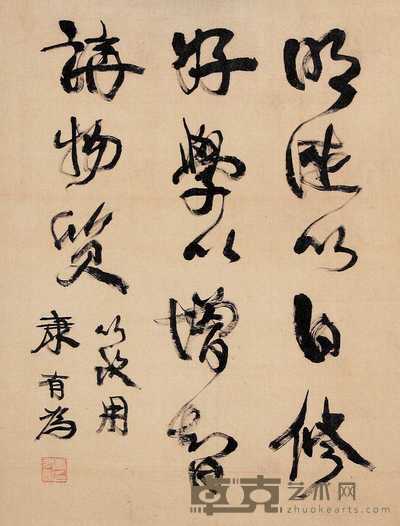 明德以自修
好學以增智
講物質
以致用
康有為
卓克艺术网
zhuokearts.com